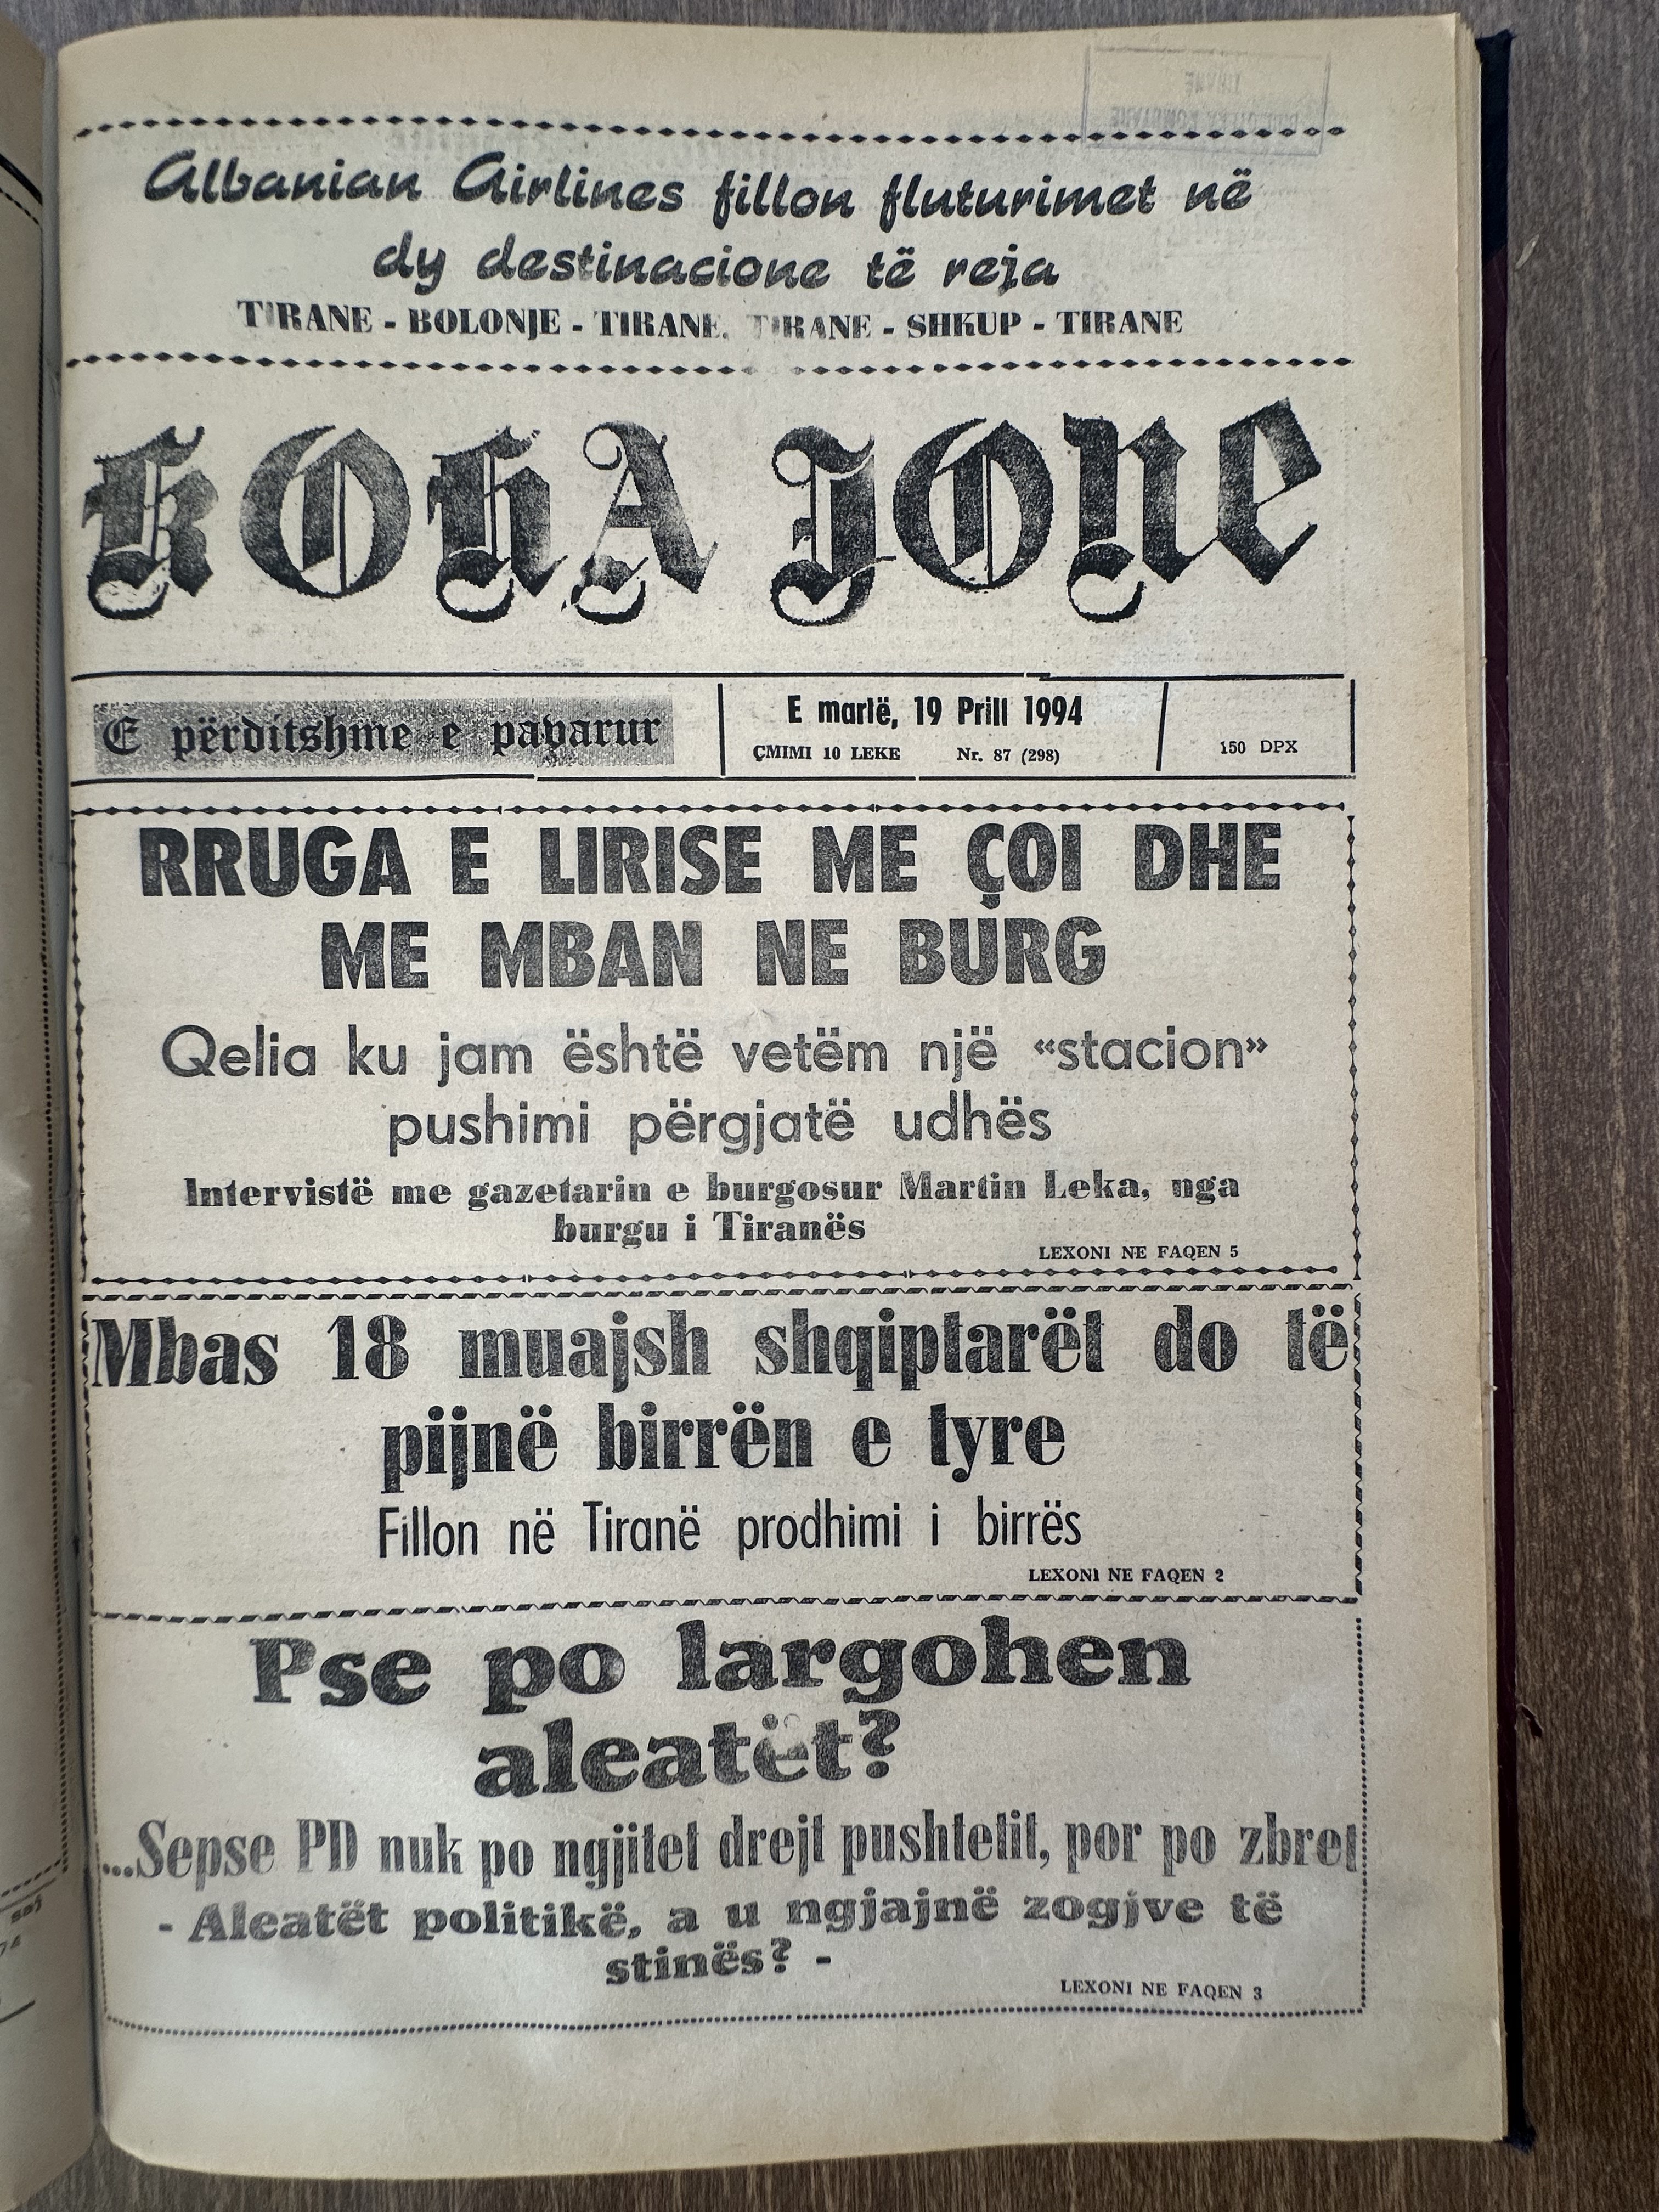 Albanian Airlines fillon fluturimet në
dy destinacione të reja
TIRANE - BOLONJE - TIRANE, TIRANE - SHKUP - TIRANE
KOHA JONE
E përditshme e pavarur
E martë, 19 Prill 1994
ÇMIMI 10 LEKE Nr. 87 (298)
150 DPX
RRUGA E LIRISE ME ÇOI DHE
ME MBAN NE BURG
Qelia ku jam është vetëm një «stacion»
pushimi përgjatë udhës
Intervistë me gazetarin e burgosur Martin Leka, nga
burgu i Tiranës
LEXONI NE FAQEN 5
Mbas 18 muajsh shqiptarët do të
pijnë birrën e tyre
Fillon në Tiranë prodhimi i birrës
LEXONI NE FAQEN 2
Pse po largohen
aleatët?
...Sepse PD nuk po ngjitet drejt pushtetit, por po zbret
- Aleatët politikë, a u ngjajnë zogjve të
stinës? -
LEXONI NE FAQEN 3